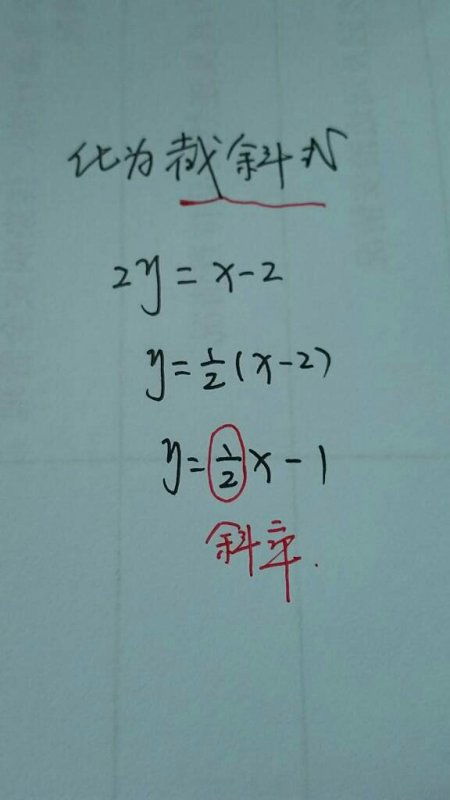 化为截斜式
2y=x-2
y=1/2(x-2)
y=1/2x-1
斜率.